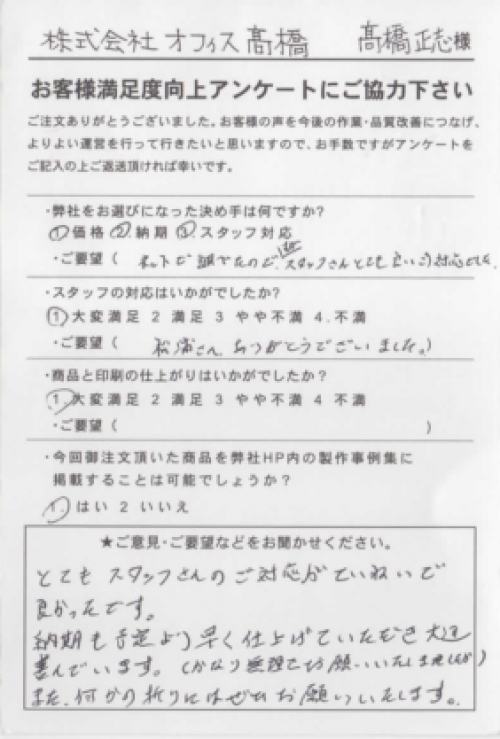 株式会社 オフィス髙橋 髙橋正志様
お客様満足度向上アンケートにご協力下さい
ご注文ありがとうございました。お客様の声を今後の作業・品質改善につなげ、
よりよい運営を行って行きたいと思いますので、お手数ですがアンケートを
ご記入の上ご返送頂ければ幸いです。
・弊社をお選びになった決め手は何ですか?
1 価格 2. 納期 3. スタッフ対応
・ご要望( ネットで スタッフさんとても良い 対応でした
・スタッフの対応はいかがでしたか?
1 大変満足 2 満足 3 やや不満 4. 不満
・ご要望( 松浦さん、ありがとうございました。)
・商品と印刷の仕上がりはいかがでしたか?
1. 大変満足 2 満足 3 やや不満 4 不満
・ご要望( )
・今回御注文頂いた商品を弊社HP内の製作事例集に
掲載することは可能でしょうか?
1. はい 2 いいえ
★ご意見・ご要望などをお聞かせください。
とても スタッフさんのご対応がていねいで
良かったです。
納期も予定より早く仕上げていただき大変
喜んでいます。(かなり無理でお願いいたしましたが)
また、何かの折りにはぜひお願いいたします。